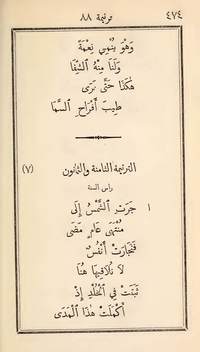 ٤٧٤ ترنيمة ٨٨
وَهْوَ يُنْمِي نِعْمَةً
وَلَنَا مِنْهُ ٱلشِّفَا
هٰكَذَا حَتَّى نَرَى
طِيبَ أَفْرَاحِ ٱلسَّمَا
الترنيمة الثامنة والثمانون (٧)
راس السنة
١ جَرَتِ ٱلشَّمْسُ إِلَى
مُنْتَهَى عَامٍ مَضَى
فَتَجَارَتْ أَنْفُسٌ
لَا نُلَاقِيهَا هُنَا
ثَبَتَتْ فِي ٱلْخُلْدِ إِذْ
أَكْمَلَتْ هٰذَا ٱلْمَدَى